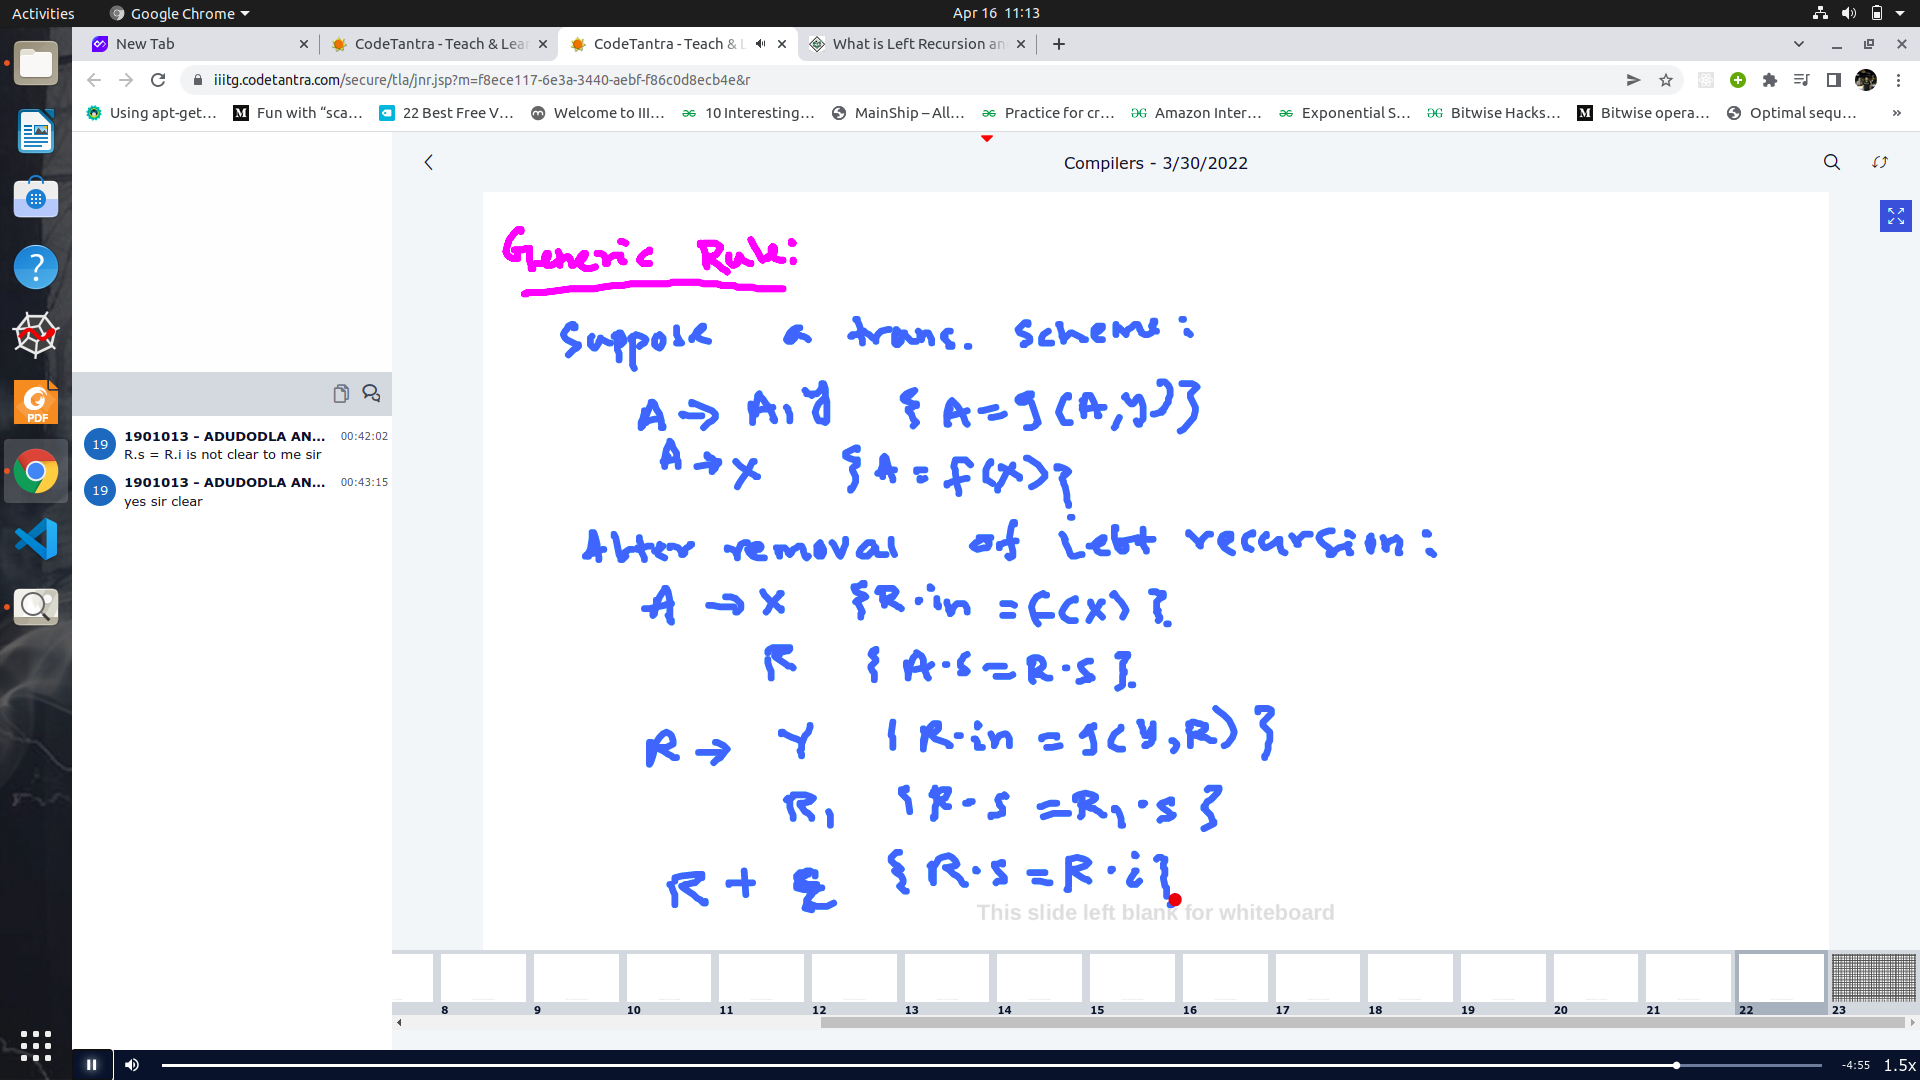 Activities
Google Chrome
Apr 16 11:13
New Tab
CodeTantra - Teach & Lea
CodeTantra - Teach & L
What is Left Recursion an
iiitg.codetantra.com/secure/tla/jnr.jsp?m=f8ece117-6e3a-3440-aebf-f86c0d8ecb4e&r
Using apt-get…
Fun with “sca…
22 Best Free V…
Welcome to III…
10 Interesting…
MainShip – All…
Practice for cr…
Amazon Inter…
Exponential S…
Bitwise Hacks…
Bitwise opera…
Optimal sequ…
»
Compilers - 3/30/2022
19
1901013 - ADUDODLA AN...
00:42:02
R.s = R.i is not clear to me sir
19
1901013 - ADUDODLA AN...
00:43:15
yes sir clear
Generic Rule:
Suppose a trans. scheme:
A → A1 Y {A = g(A,y)}
A → X {A = f(X)}
After removal of left recursion:
A → X {R.in = f(X)}
R {A.s = R.s}
R → Y {R.in = g(Y,R)}
R1 {R.s = R1.s}
R → ε {R.s = R.i}
This slide left blank for whiteboard
8 9 10 11 12 13 14 15 16 17 18 19 20 21 22 23
-4:55
1.5x
PDF